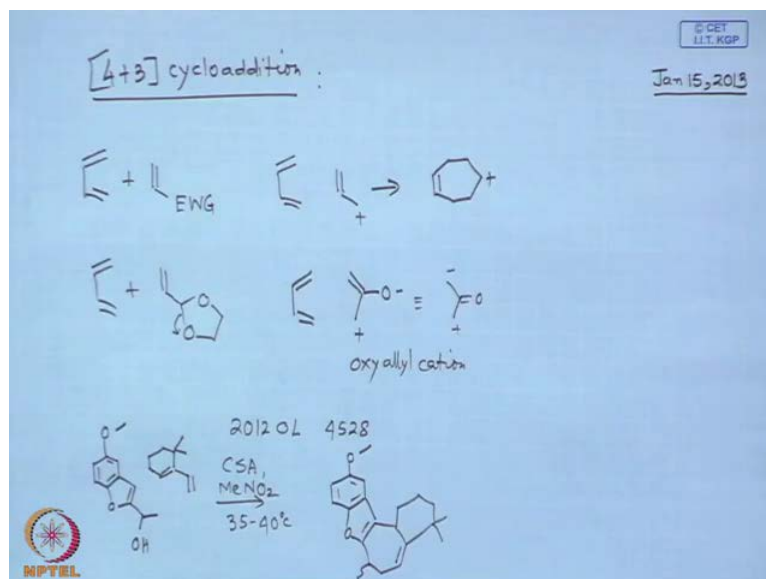 © CET
I.I.T. KGP
[4+3] cycloaddition :
Jan 15, 2013
+ EWG + → +
+ O O O- ≡ - =O
+ +
oxyallyl cation
2012 OL 4528
O CSA,
MeNO2
O OH 35-40°C O O
NPTEL